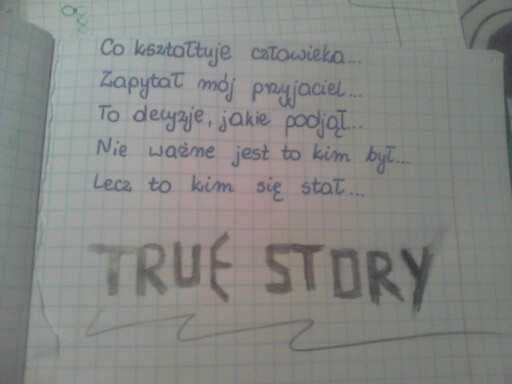 Co kształtuje człowieka...
Zapytał mój przyjaciel...
To decyzje, jakie podjął...
Nie ważne jest to kim był...
Lecz to kim się stał...
TRUE STORY